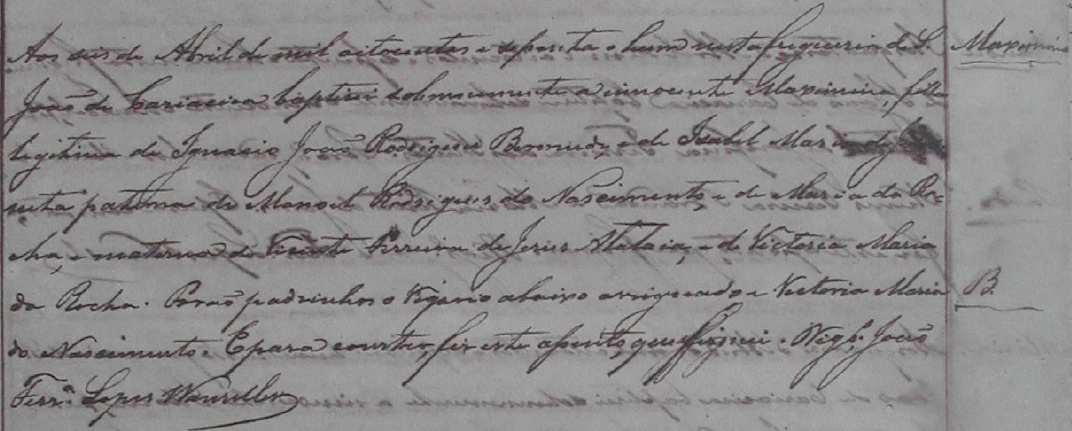 Aos seis de Abril de mil oitocentos e sessenta e hum nesta freguezia de S.
João de Cariacica baptisei solemnemente a innocente Maximina, filha
legitima de Ignacio João Rodrigues Bermudes e de Isabel Maria de
neta paterna de Manoel Rodrigues do Nascimento, e de Maria da Ro-
cha, e materna de Vicente Ferreira de Jesus Atalaia, e de Victoria Maria
da Rocha. Forão padrinhos o Vigario abaixo assignado e Victoria Maria
do Nascimento. E para constar, fiz este assento, que assignei. Vigr.º João
Ferr.ª Lopes
Maximina
B.